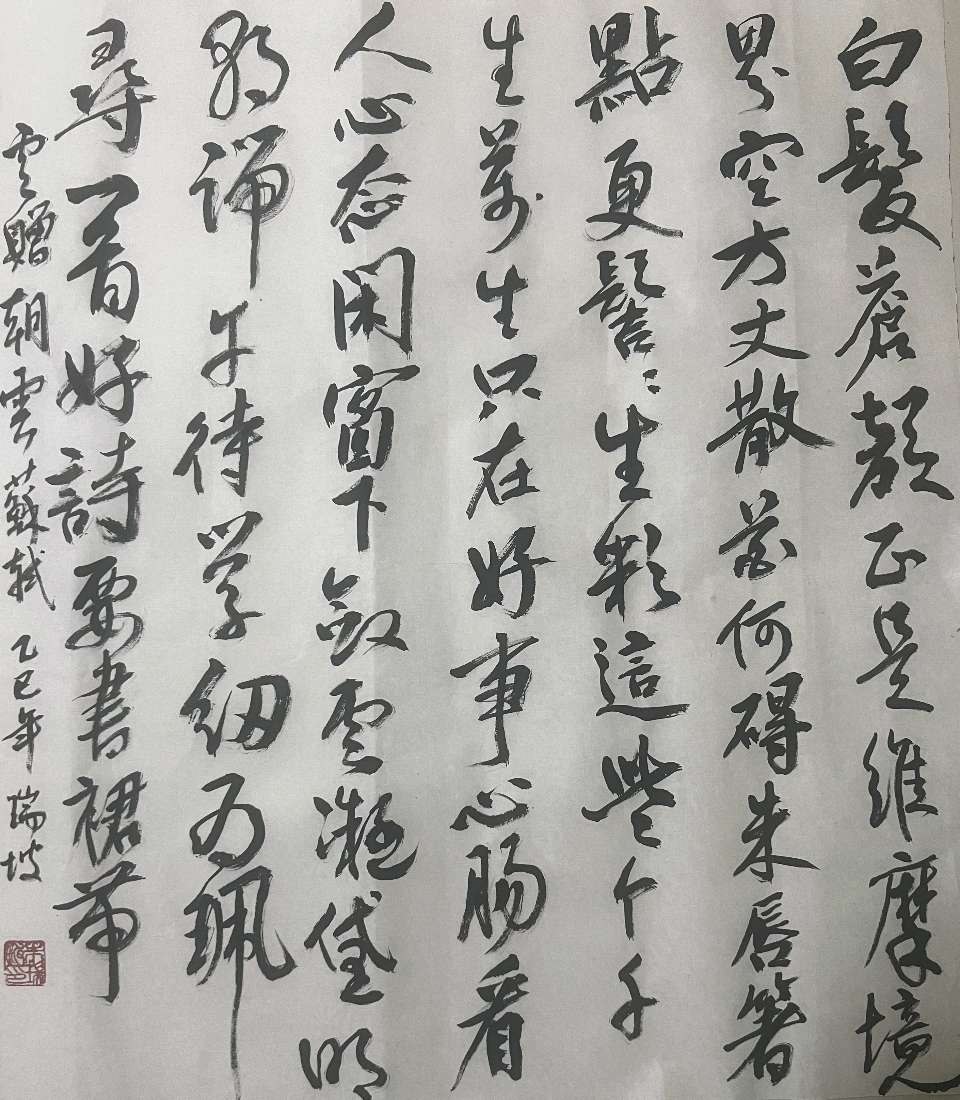 白髮蒼顏正是維摩境
界空方丈散花何碍朱唇箸
點更髻〻生彩這些个千
生萬生只在好事心腸看
人心态闲窗下敛雲凝黛明
朝端午待学纫为珮
尋一首好詩要書裙帶
雲贈朝雲蘇軾 乙巳年 瑞坡